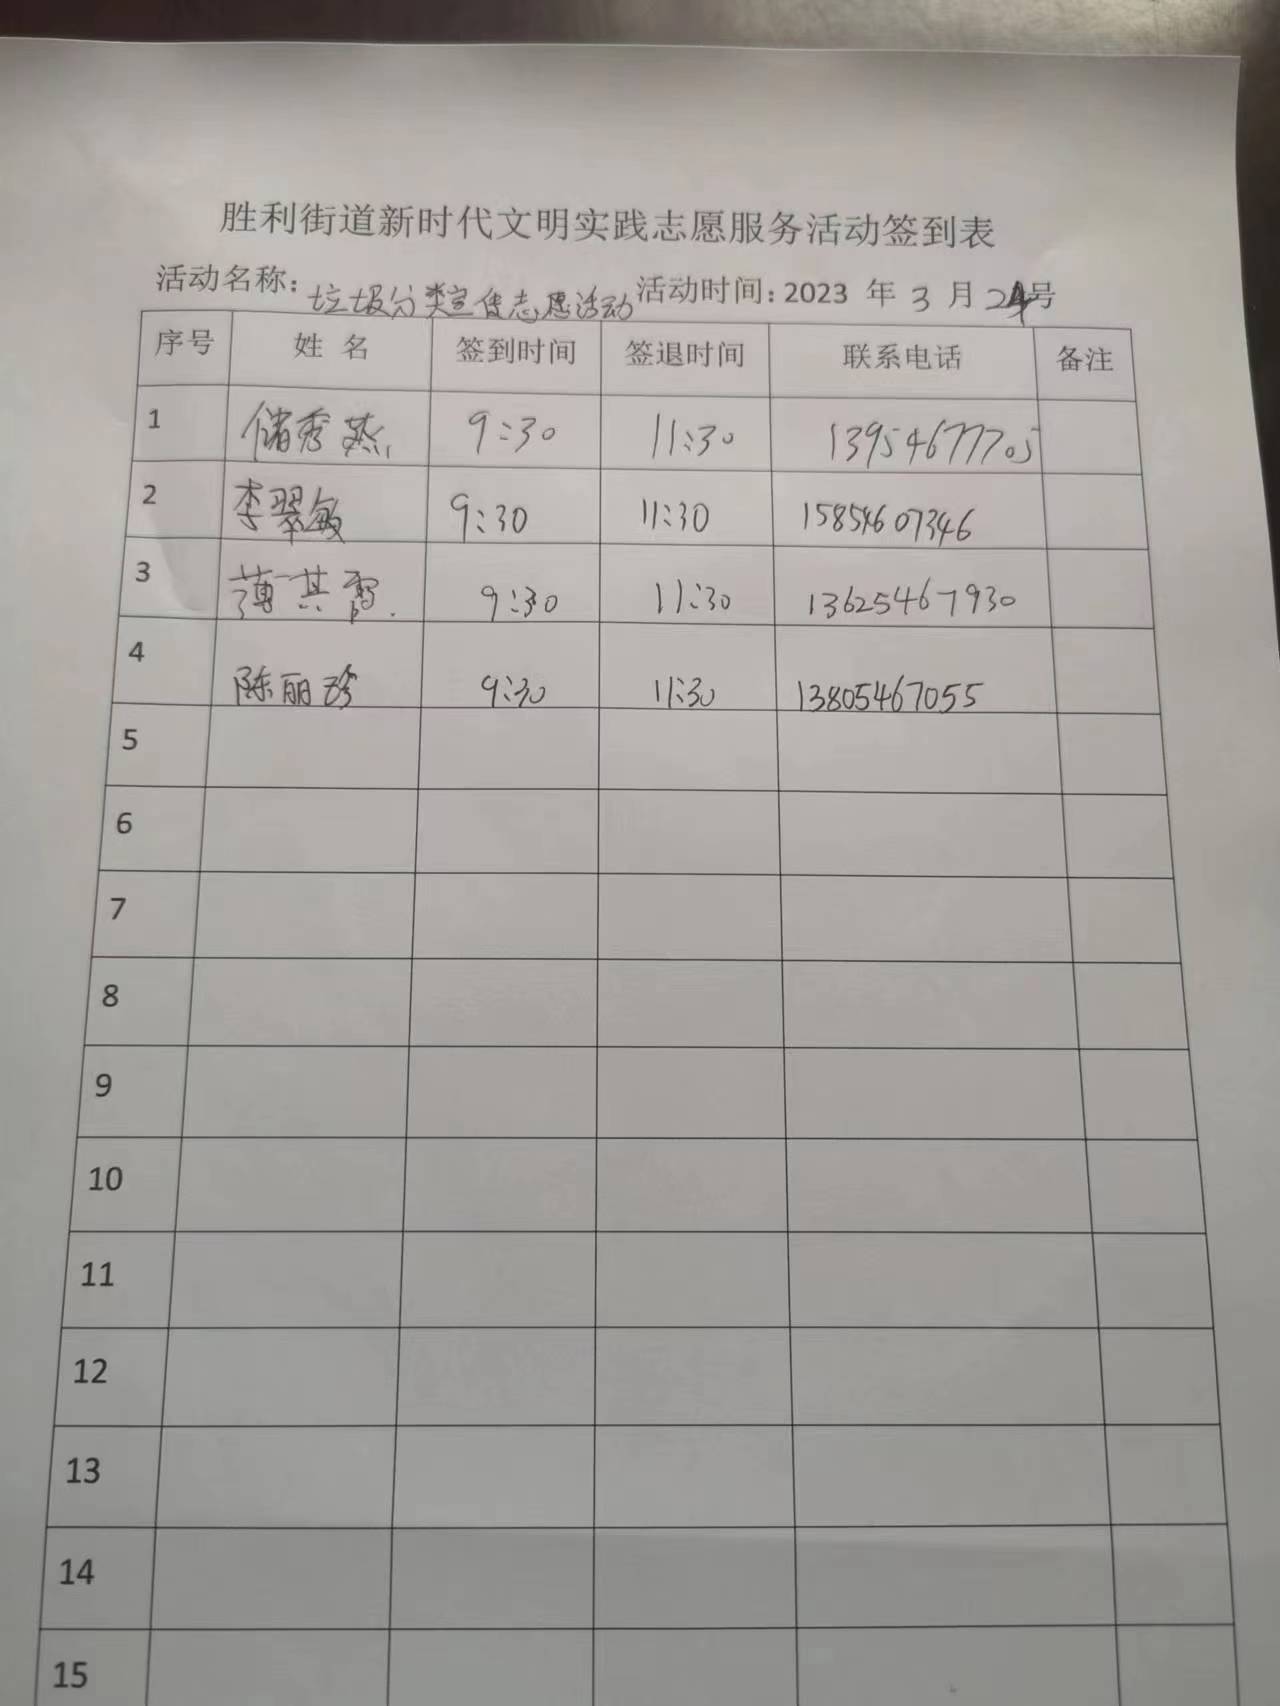 胜利街道新时代文明实践志愿服务活动签到表
活动名称：垃圾分类宣传志愿活动 活动时间：2023 年 3 月 24号
序号 姓 名 签到时间 签退时间 联系电话 备注
1 储秀燕 9:30 11:30 13954677705
2 李翠敏 9:30 11:30 15854607346
3 薄其雷 9:30 11:30 13625467930
4 陈丽珍 9:30 11:30 13805467055
5
6
7
8
9
10
11
12
13
14
15